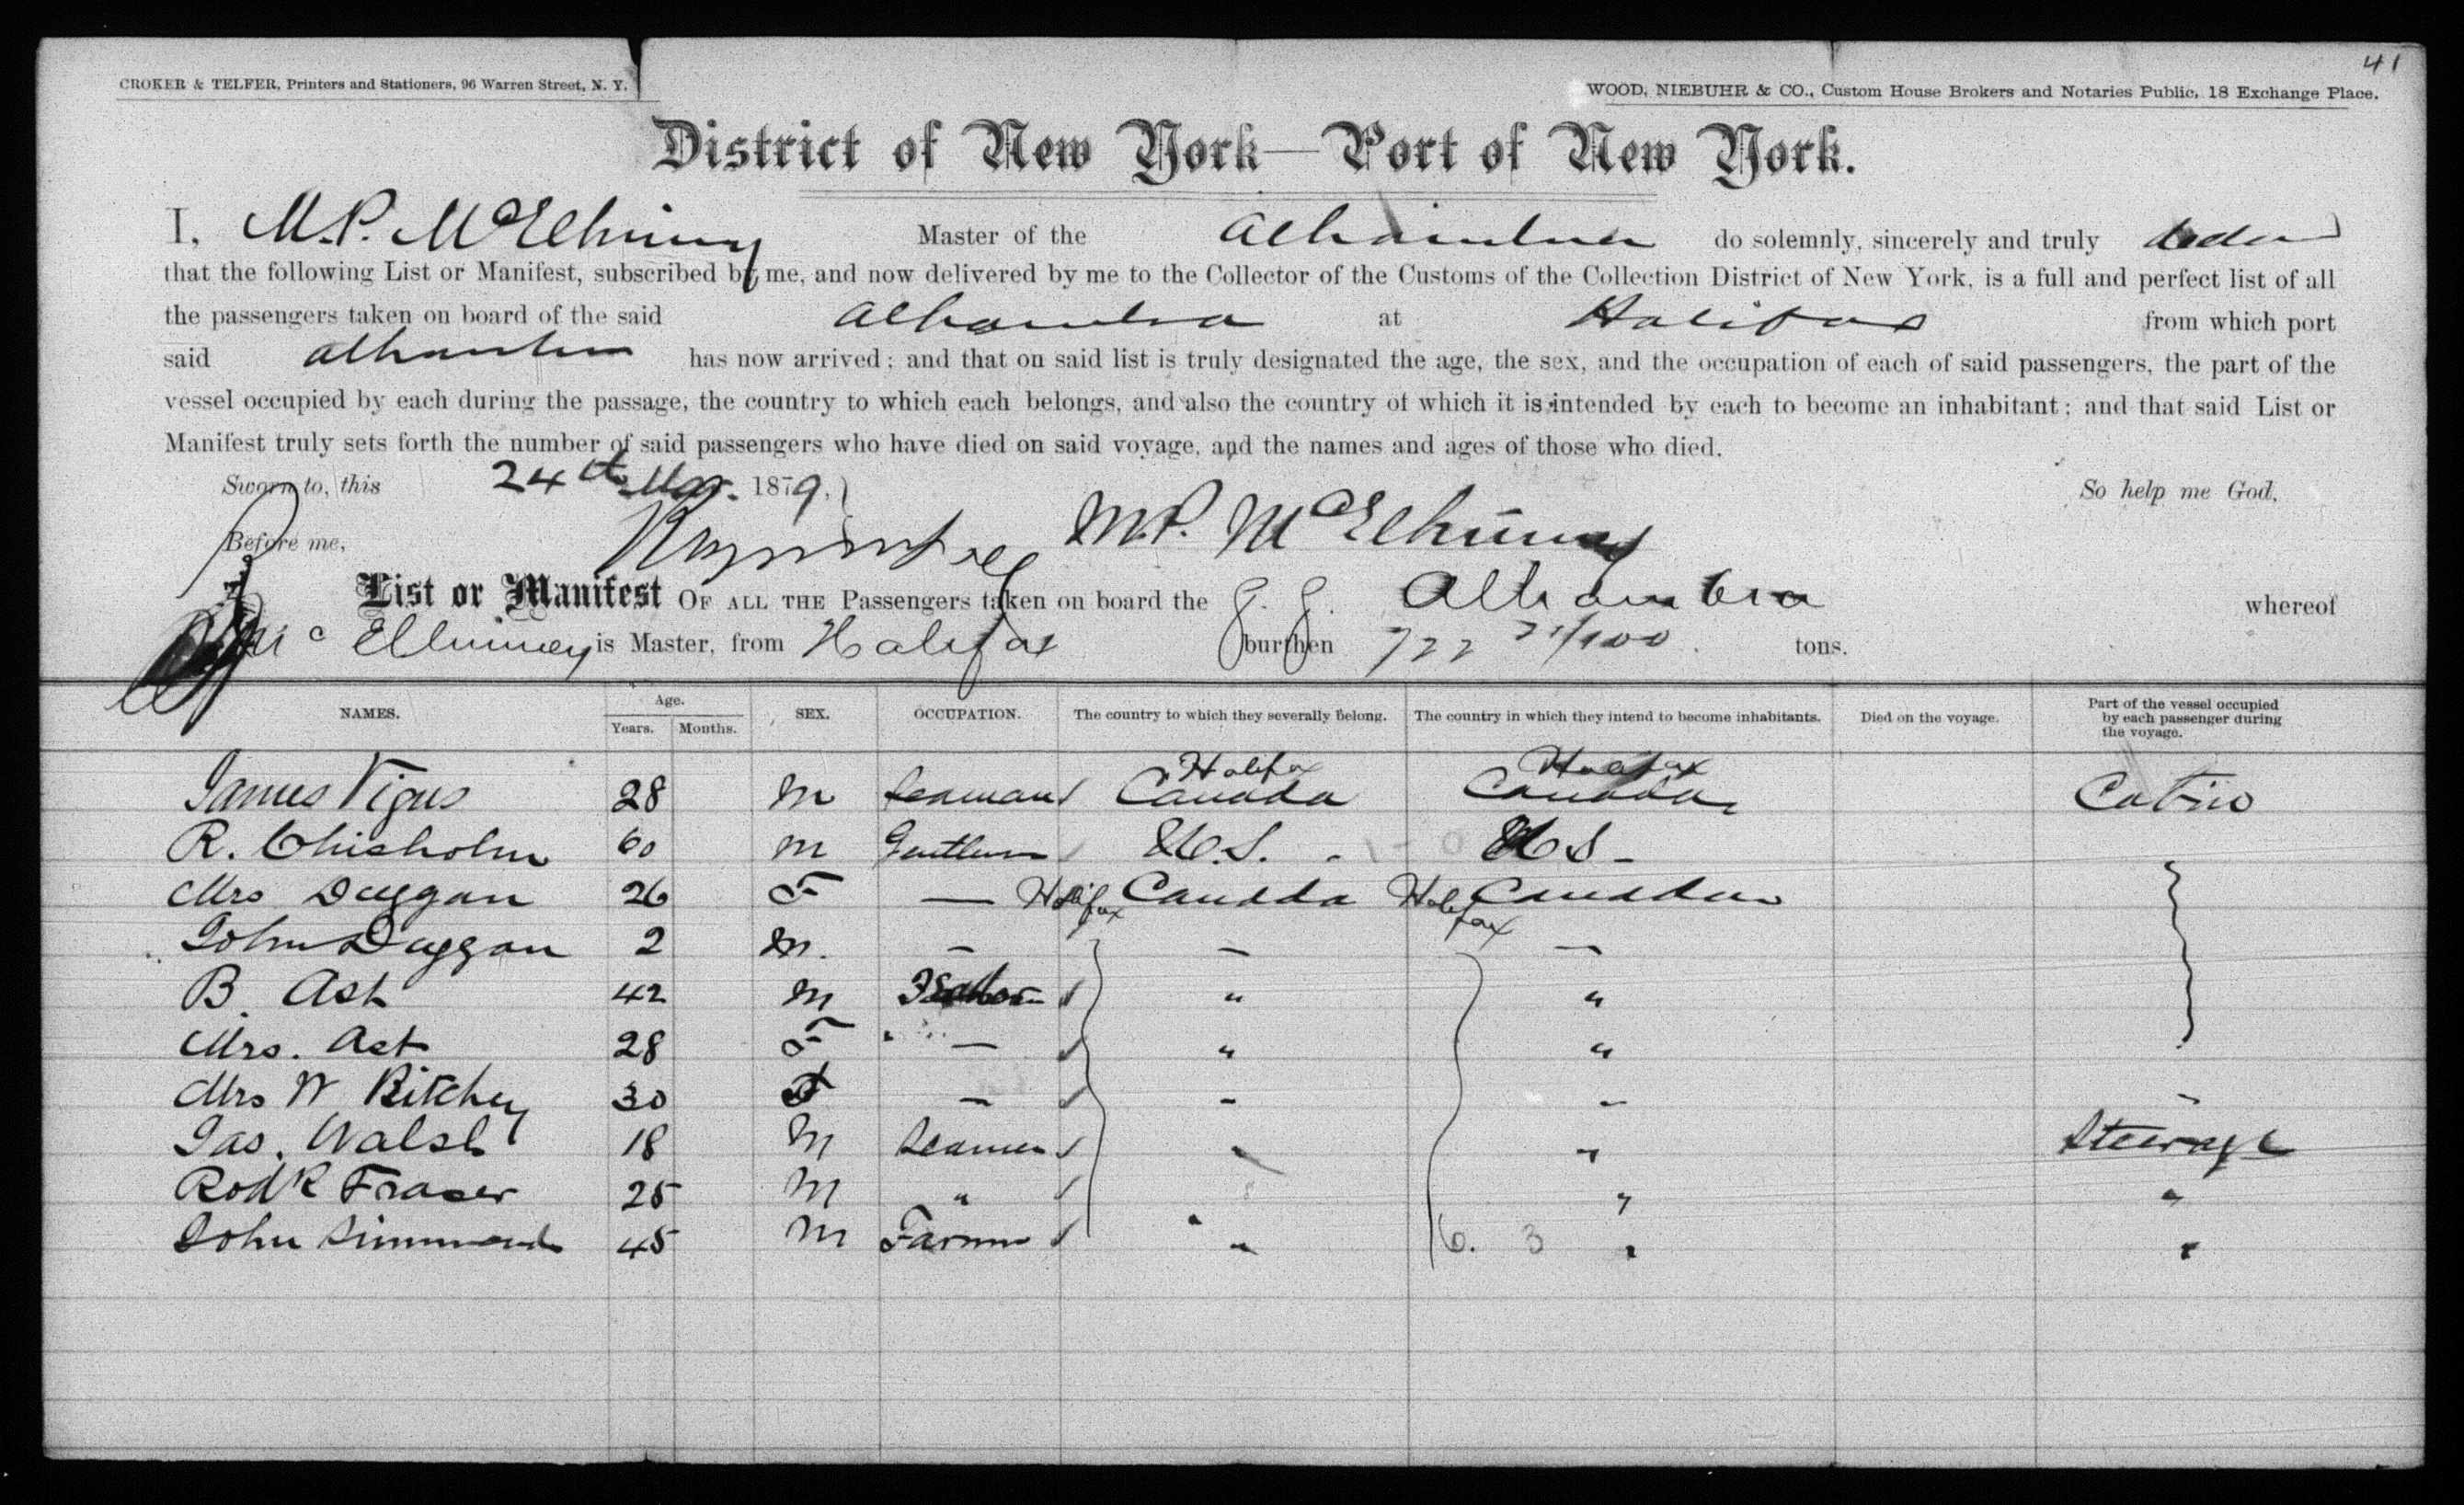 41
CROKER & TELFER, Printers and Stationers, 96 Warren Street, N. Y.
WOOD, NIEBUHR & CO., Custom House Brokers and Notaries Public, 18 Exchange Place.
District of New York—Port of New York.
I, M.P. McElhinney Master of the Alhambra do solemnly, sincerely and truly
that the following List or Manifest, subscribed by me, and now delivered by me to the Collector of the Customs of the Collection District of New York, is a full and perfect list of all
the passengers taken on board of the said Alhambra at Halifax from which port
said Alhambra has now arrived; and that on said list is truly designated the age, the sex, and the occupation of each of said passengers, the part of the
vessel occupied by each during the passage, the country to which each belongs, and also the country of which it is intended by each to become an inhabitant; and that said List or
Manifest truly sets forth the number of said passengers who have died on said voyage, and the names and ages of those who died.
Sworn to, this 24th Mar. 1879, So help me God,
Before me, M.P. McElhinney
List or Manifest OF ALL THE Passengers taken on board the Alhambra whereof
McElhinney is Master, from Halifax burthen 722 71/100 tons.
NAMES. Age. Years. Months. SEX. OCCUPATION. The country to which they severally belong. The country in which they intend to become inhabitants. Died on the voyage. Part of the vessel occupied by each passenger during the voyage.
James Vigus 28 M Seaman Halifax Canada Halifax Canada Cabin
R. Chisholm 60 M Gentleman U.S. - U S -
Mrs Duggan 26 F — Halifax Canada Halifax Canada
John Duggan 2 M. — — —
B. Ash 42 M " "
Mrs. Ash 28 F — " "
Mrs W Ritchey 30 F — " " "
Jas. Walsh 18 M Seaman " " Steerage
Rodk Fraser 25 M " " " "
John Simmonds 45 M Farmer " 6. 3 " "